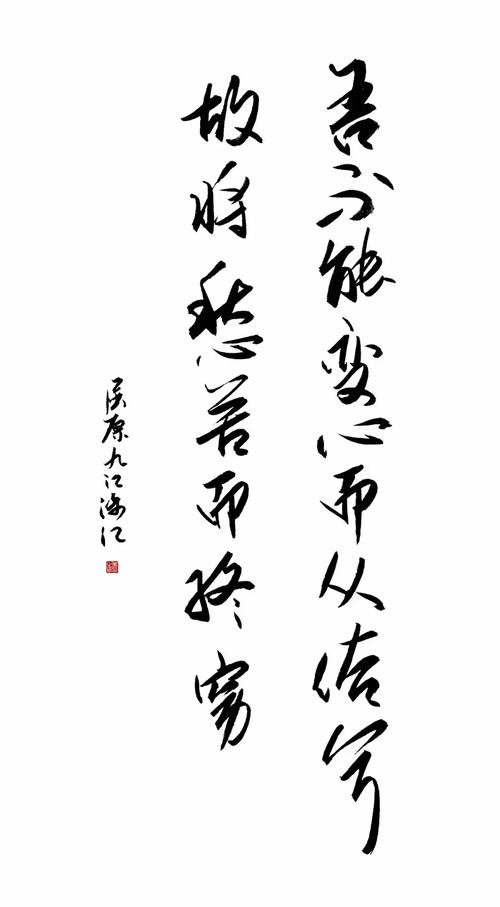 吾不能变心而从俗兮
故将愁苦而终穷
屈原九江涉江